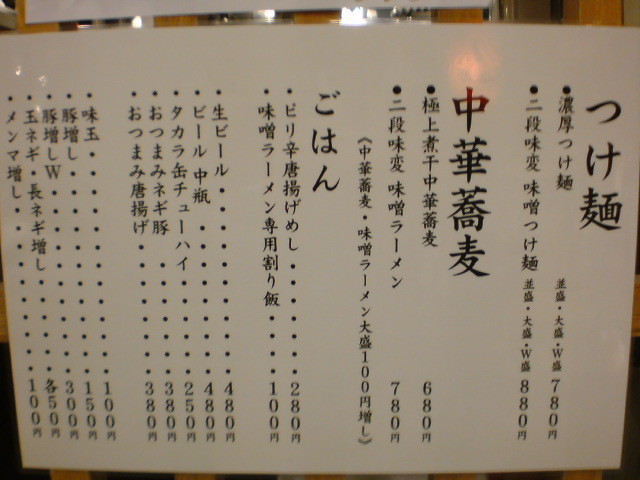 つけ麺
●濃厚つけ麺 並盛・大盛・W盛 780円
●二段味変 味噌つけ麺 並盛・大盛・W盛 880円
中華蕎麦
●極上煮干中華蕎麦 680円
●二段味変 味噌ラーメン 780円
《中華蕎麦・味噌ラーメン大盛100円増し》
ごはん
・ピリ辛唐揚げめし・・・・・・280円
・味噌ラーメン専用割り飯・・・・100円
・生ビール・・・・・・・・・・480円
・ビール 中瓶・・・・・・・・480円
・タカラ缶チューハイ・・・・・・250円
・おつまみネギ豚・・・・・・・380円
・おつまみ唐揚げ・・・・・・・380円
・味玉・・・・・・・・・・・・100円
・豚増し・・・・・・・・・・・150円
・豚増しW・・・・・・・・・・300円
・玉ネギ・長ネギ増し・・・・・各50円
・メンマ増し・・・・・・・・・100円